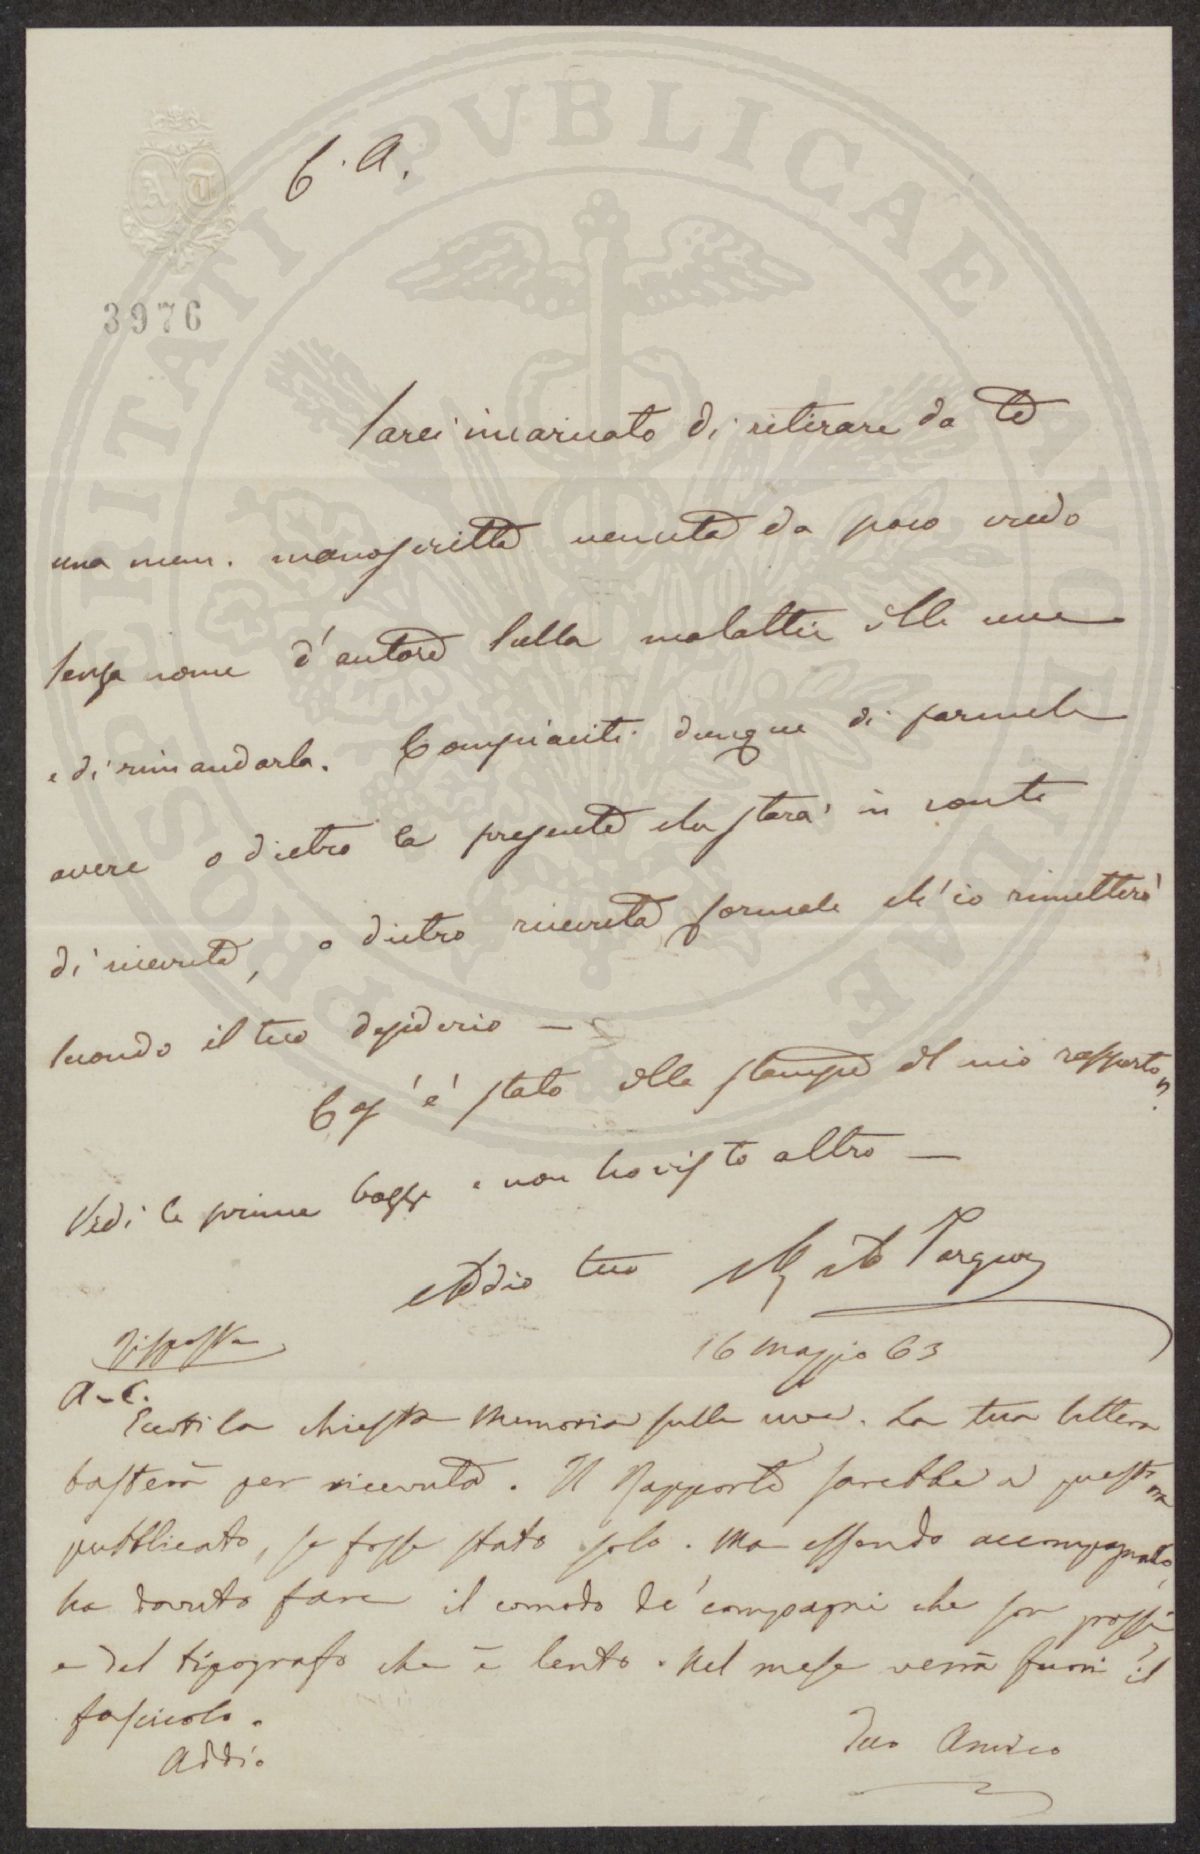 C. A.
AT
3976
Sarei incaricato di ritirare da te
una mem. manoscritta venuta da poco credo
senza nome d'autore sulla malattia delle uve
e di rimandarla. Compiaciti dunque di farmela
avere o dietro la presente che starà in conto
di ricevuta, o dietro ricevuta formale ch'io rimetterò
secondo il tuo desiderio —
Cos' è stato della stampa del mio rapporto?
Vidi le prime bozze e non ho visto altro —
Addio tuo Ad. Targioni
16 Maggio 63
Risposta
A. C.
Eccoti la chiesta Memoria sulle uve. La tua lettera
basterà per ricevuta. Il Rapporto sarebbe a quest'ora
pubblicato, se fosse stato solo. Ma essendo accompagnato,
ha dovuto fare il comodo de' compagni che son grossi
e del tipografo che è lento. Nel mese verrà fuori il
fascicolo.
Addio
Tuo Amico
PROSPERITATI PUBLICAE AUGENDAE